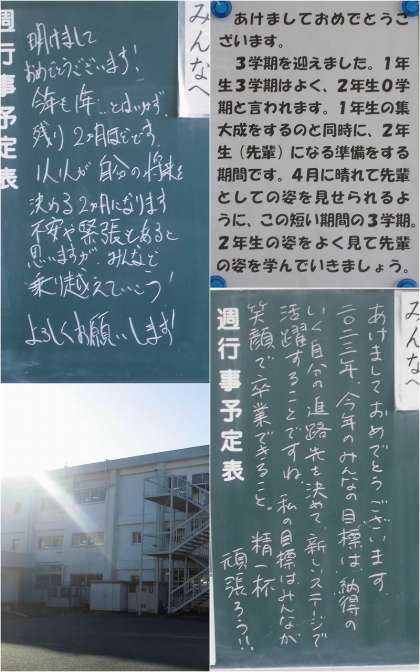 みんなへ
週行事予定表
明けまして
おめでとうございます!
今年も1年…とはいかず、
残り2ヶ月ほどです。
1人1人が自分の将来を
決める2ヶ月になります
不安や緊張もあると
思いますが、みんなで
乗り越えていこう!
よろしくお願いします!
あけましておめでとうご
ざいます。
3学期を迎えました。1年
生3学期はよく、2年生0学
期と言われます。1年生の集
大成をするのと同時に、2年
生（先輩）になる準備をする
期間です。4月に晴れて先輩
としての姿を見せられるよ
うに、この短い期間の3学期。
2年生の姿をよく見て先輩
の姿を学んでいきましょう。
みんなへ
週行事予定表
あけましておめでとうございます。
二〇二三年、今年のみんなの目標は、納得の
いく自分の進路先を決めて、新しいステージで
活躍することですね。私の目標はみんなが
笑顔で卒業できること。精一杯
頑張ろう!!